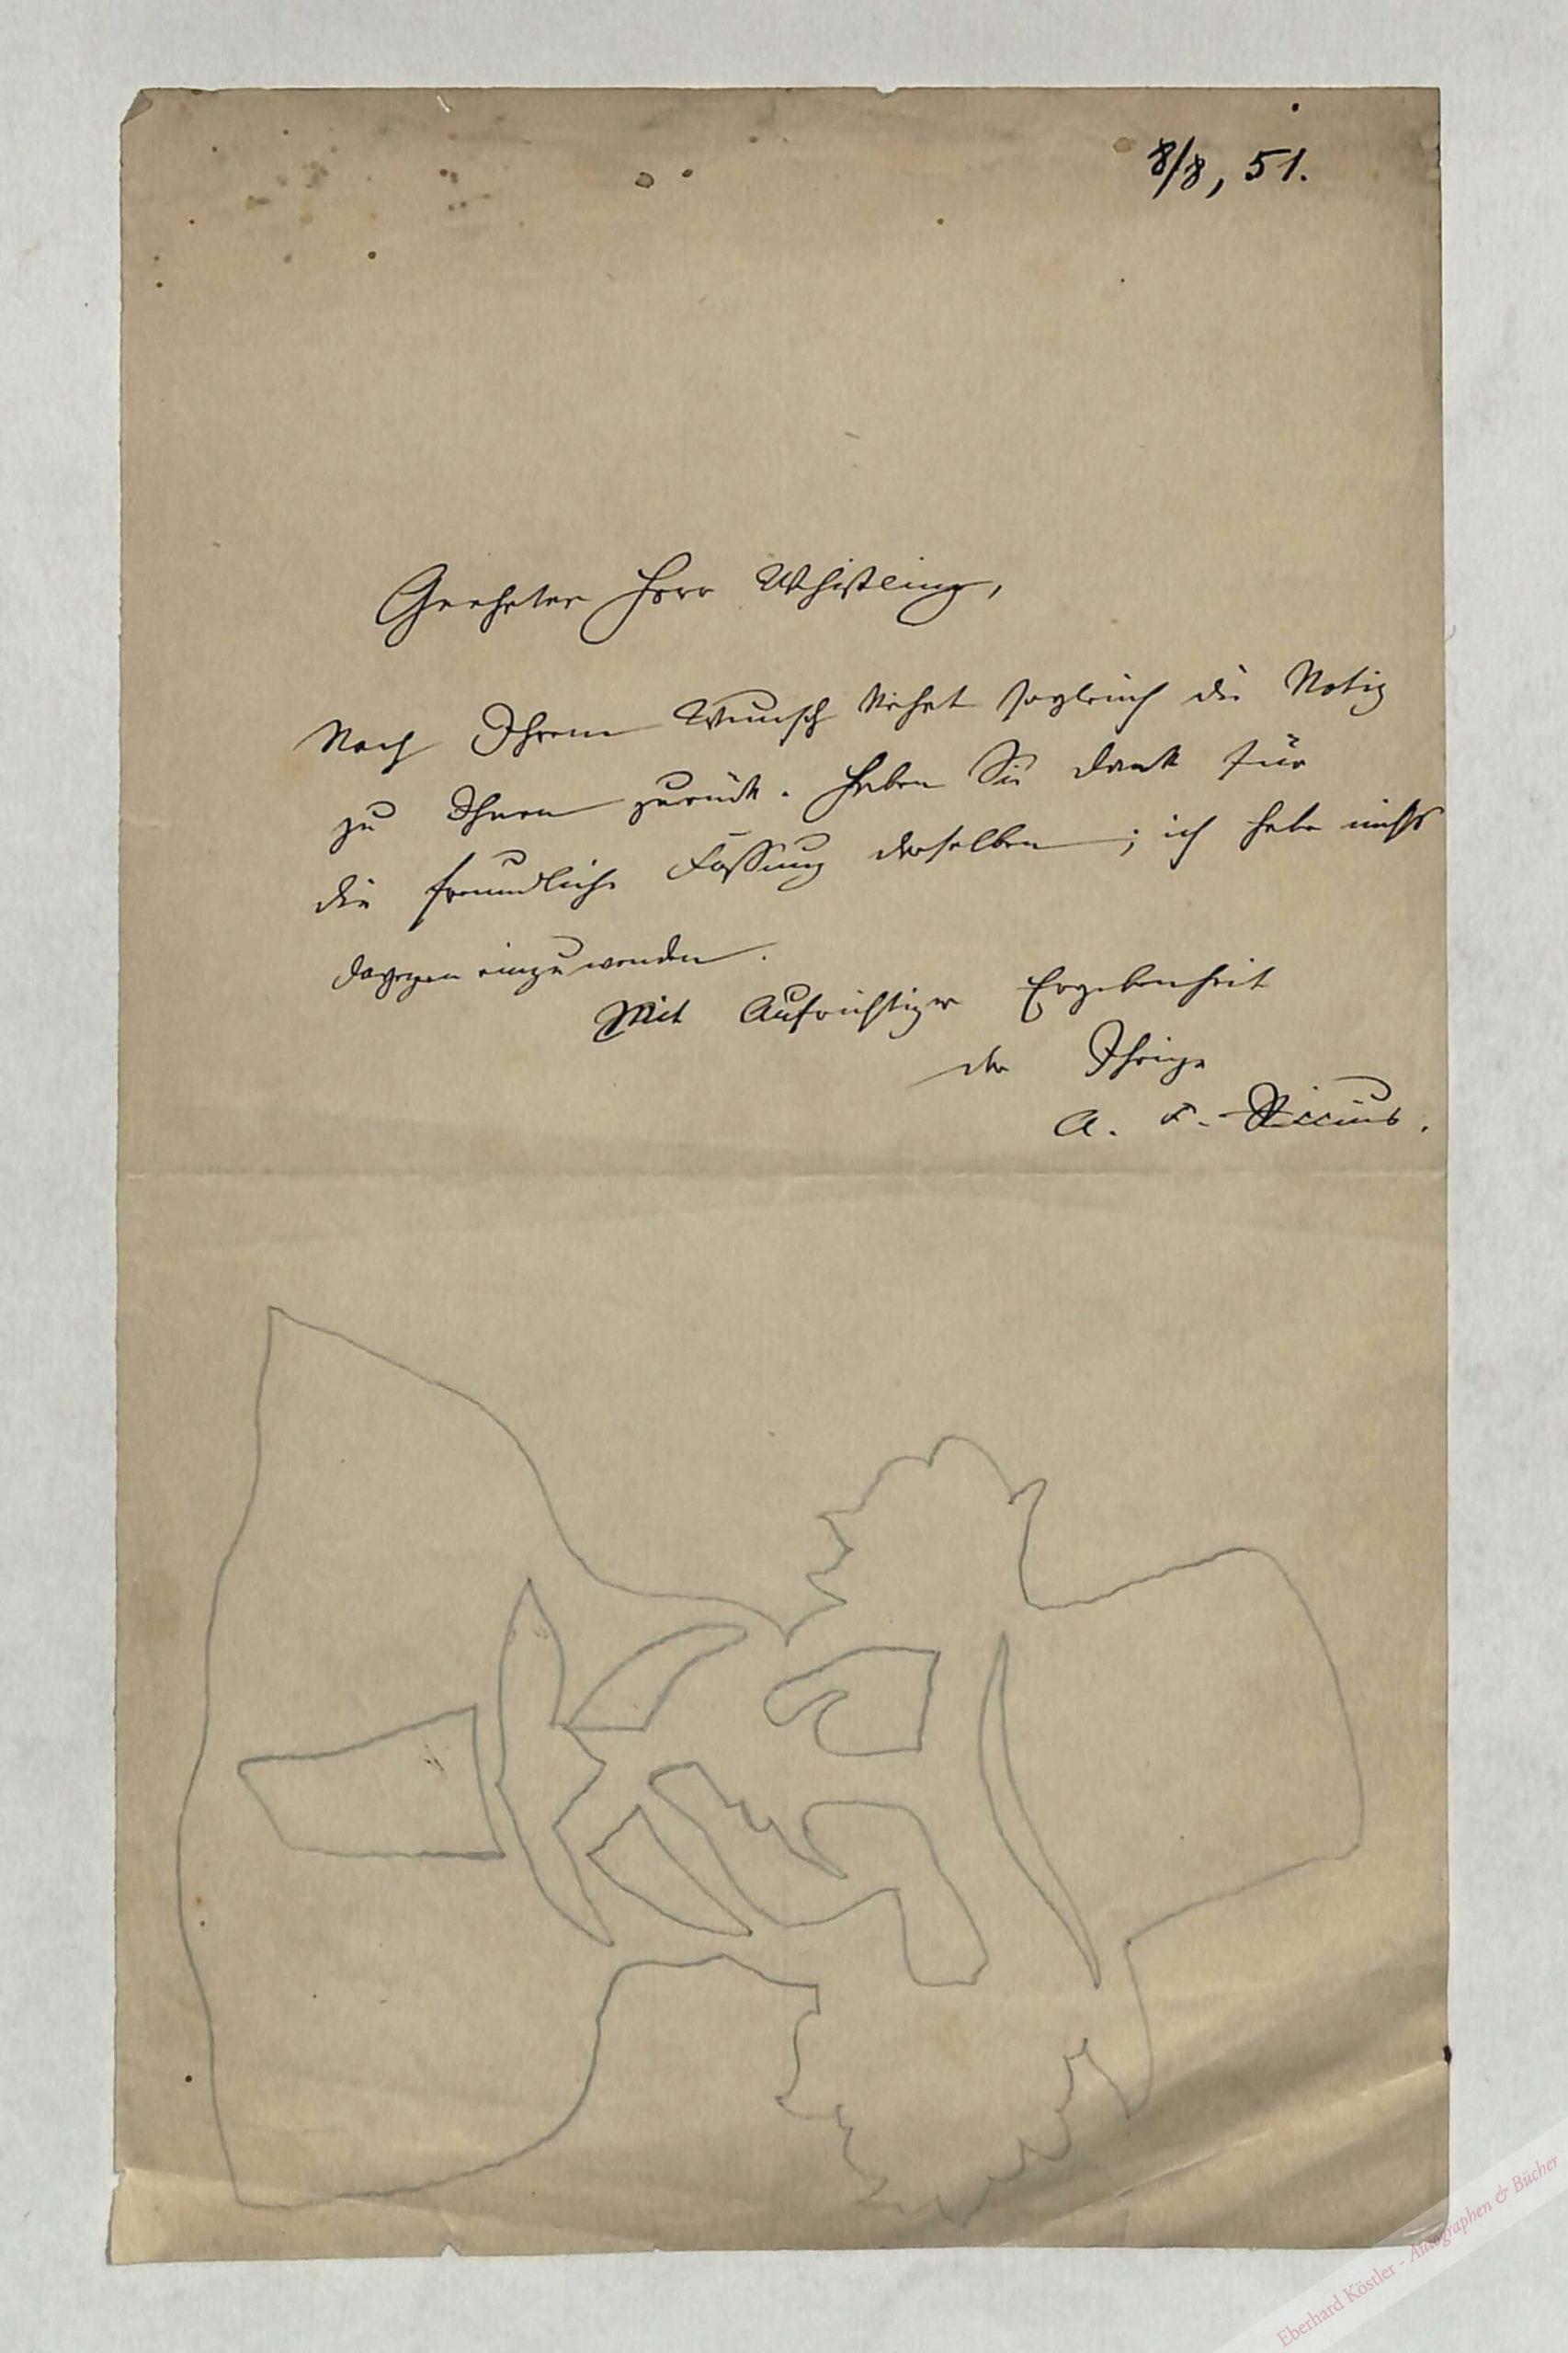 8/8, 51.
Geehrter Herr Whistling,
Nach Ihrem Wunsch kehrt sogleich die Notiz
zu Ihnen zurück. Haben Sie Dank für
die freundliche Fassung derselben; ich habe nichts
dagegen einzuwenden.
Mit Aufrichtiger Ergebenheit
der Ihrige
A. F. Riccius.
Eberhard Köstler - Autographen & Bücher